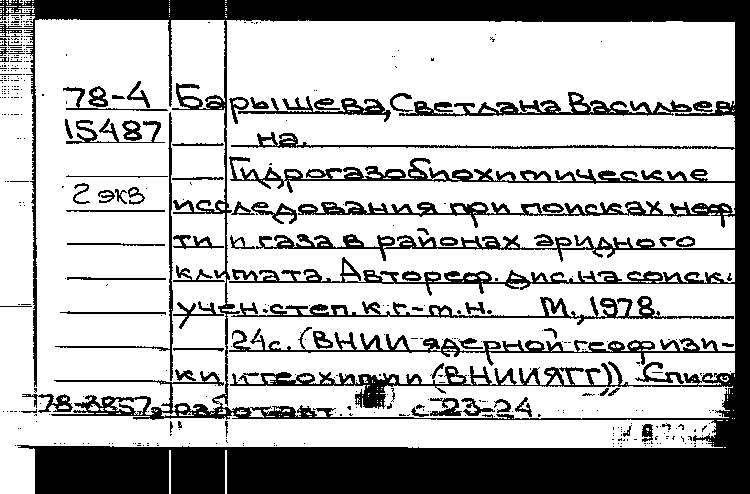 78-4 Барышева, Светлана Васильев
15487 на.
Гидрогазобиохимические
2 экз исследования при поисках неф
ти и газа в районах аридного
климата. Автореф. дис. на соиск.
учен. степ. к. г.-м. н. М., 1978.
24с. (ВНИИ ядерной геофизи-
ки и геохимии (ВНИИЯГГ)). Списо
работ авт.: с 23-24.